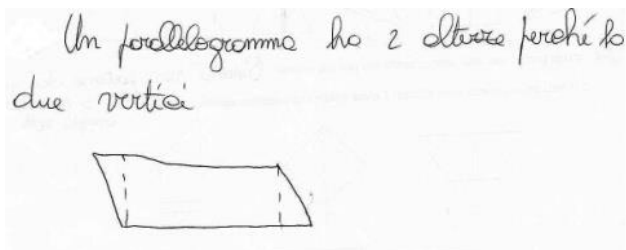 Un parallelogramma ha 2 altezze perché ha
due vertici